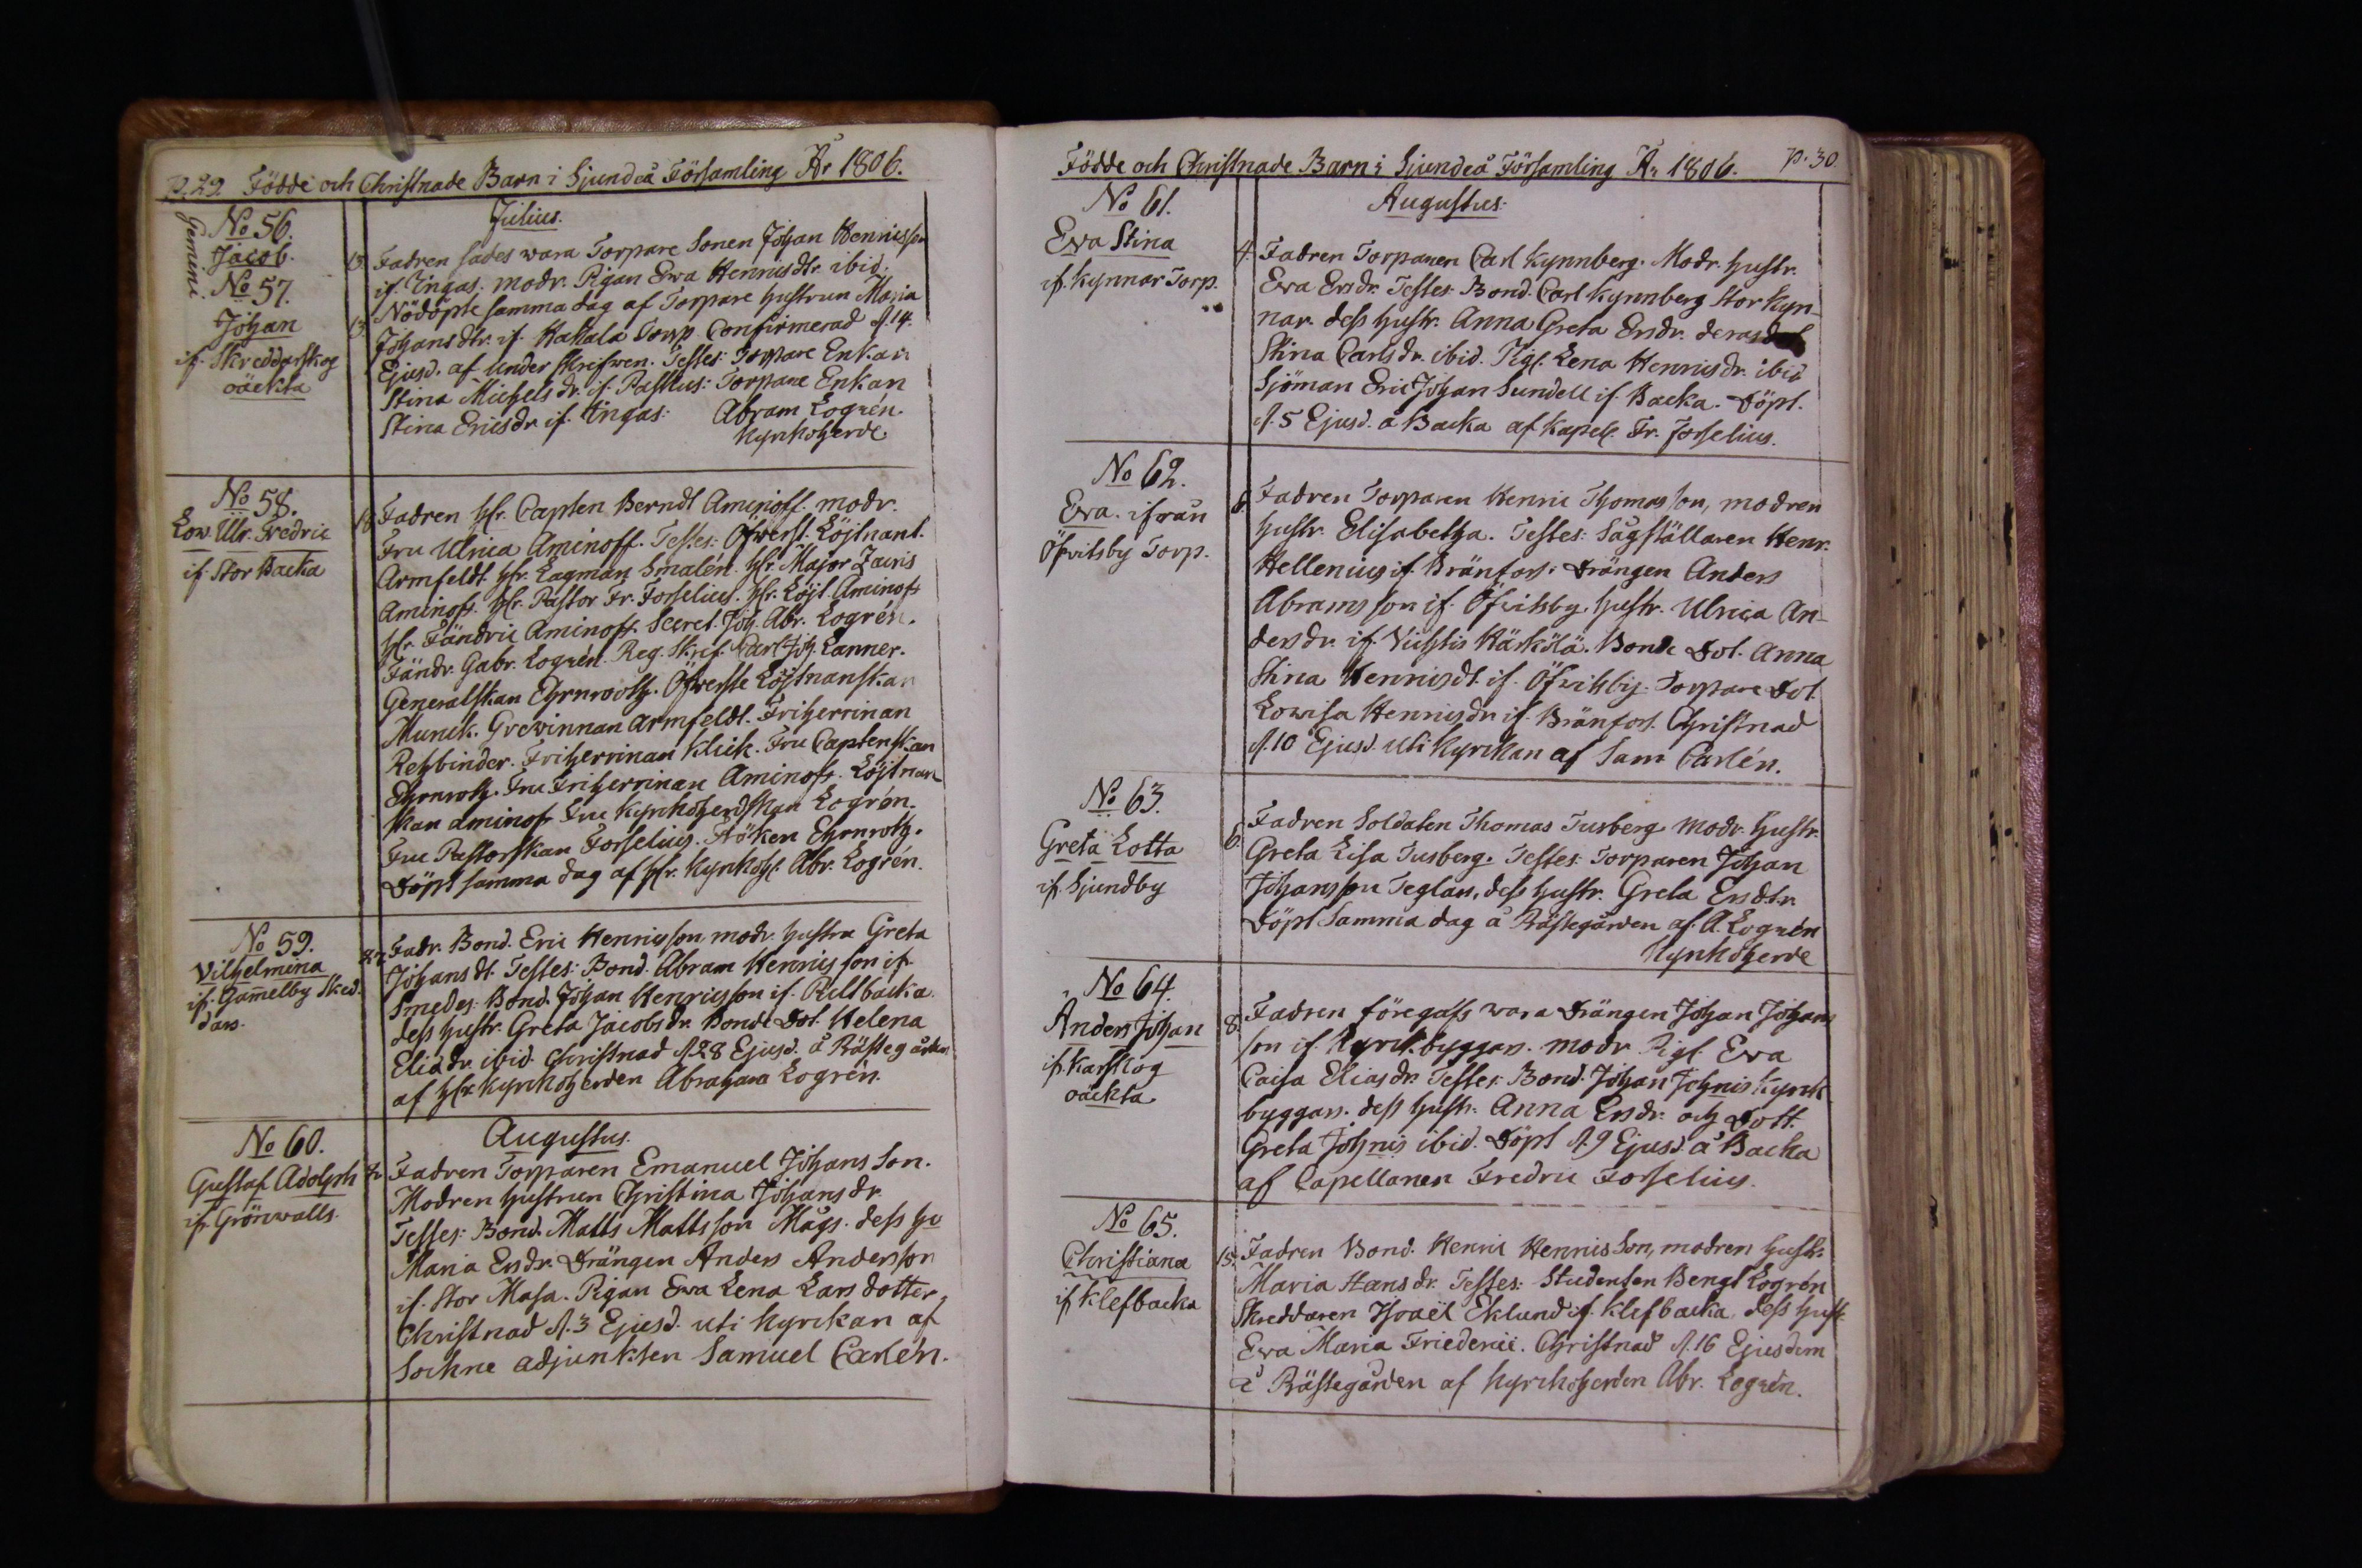 p. 29. Födde och Christnade Barn i Sjundeå Församling År 1806.
Gemini.
No 56.
Jacob.
No 57.
Johan
if. Skreddarskog
oäckta
Julius.
13. Fadren sades wara Torpare Sonen Johan Henricsson
if. Ingas. modr. Pigan Ewa Henricsdtr. ibid.
Nöddöpte samma dag af Torpare hustrun Maria
13. Johansdtr. if. Hakala Torp Confirmerad d. 14.
Ejusd. af Underskrifwen. Testes: Torpare Enkan
Stina Michelsdr. if. Pastlus: Torpare Enkan
Stina Ericsdr if. Ingas: Abram Logrén.
Kyrkoherde
No 58.
Low. Ulr. Fredric
if. Stor Backa
18. Fadren hr. Capten Berndt Aminoff. modr.
Fru Ulrica Aminoff. Testes: Öfwerst. Löjtnant.
Armfeldt. hr. Lagman Smalén. hr. Major Zairis
Aminoff. hr. Pastor Fr. Forselius. hr. Löjt. Aminoff
hr. Fändric Aminoff. Secret. Joh. Abr. Logrén.
Fändr. Gabr. Logrén. Reg. Skrif. Carl Joh. Lanner.
Generalskan Ehrnrooth. Öfwerste Löjtnanskan
Munck. Grevinnan Armfeldt. Friherrinan
Rehbinder. Friherrinan Klick. Fru Captenskan
Ehrnroth. Fru Friherrinan Aminoff. Löjtnan
skan Aminof Fru Kyrkoherdskan Logrén.
Fru Pastorskan Forselius. Fröken Ehrnroth.
Döpt samma dag af hr. Kyrkoh. Abr. Logrén.
No 59.
Vilhelmina
if. Gammelby Sked.
dars.
27. Fadr. Bond. Eric Henricsson modr. hustru Greta
Johansdt. Testes: Bond. Abram Henricsson if.
Smedes. Bond. Johan Henricsson if. Pellbacka.
dess hustr. Greta Jacobsdr. Bonde Dot. Helena
Eliædr. ibid. Christnad d. 28 Ejusd. å Prästegården
af hr. Kyrkoherden Abraham Logrén.
No 60.
Gustaf Adolph
if. Grönwalls.
Augustus.
2. Fadren Torparen Emanuel Johans Son.
Modren hustrun Christina Johansdr.
Testes: Bond. Matts Mattsson Mågs. dess hu
Maria Ersdr. Drängen Anders Andersson
if. Stor Masa. Pigan Ewa Lena Larsdotter,
Christnad d. 3 Ejusd. uti Kyrckan af
Sockne adjunkten Samuel Carlén.
Födde och Christnade Barn i Sjundeå Församling År 1806. p. 30.
No 61.
Ewa Stina
if. Kynnar Torp.
Augustus.
4. Fadren Torparen Carl Kynnberg. Modr. hustr.
Ewa Ersdr. Testes: Bond. Carl Kynnberg Stor Kyn-
nar. dess hustr. Anna Greta Ersdr. deras dot
Stina Carlsdr. ibid. Pig. Lena Henricsdr. ibid
Sjöman Eric Johan Sundell if. Backa. Döpt.
d. 5 Ejusd. å Backa af Kapell. Fr. Forselius.
No 62.
Ewa. ifrån
Öfvitsby Torp.
8. Fadren Torparen Henric Thomasson, modren
hustr. Elisabetha. Testes: Sågställaren Henr.
Hellenius if. Bränfors. Drängen Anders
Abramsson if. Öfvitsby. hustr. Ulrica An-
dersdr. if. Vichtis Härkälä. Bonde Dot. Anna
Stina Henricsdt. if. Öfvitsby. Torpare Dot.
Lowisa Henricsdr if. Bränfors. Christnad
d. 10 Ejusd. uti Kyrckan af Sam Carlén.
No 63.
Greta Lotta
if. Sjundby
6. Fadren Soldaten Thomas Tusberg modr. hustr.
Greta Lisa Tusberg. Testes: Torparen Johan
Johansson Teglars, dess hustr. Greta Ersdtr.
Döpt Samma dag å Prästegården af A. Logrén
Kyrkoherde
No 64.
Anders Johan
if. Karskog
oäckta.
8. Fadren föregafs wara Drängen Johan Johans
son if. Kyrckbyggars. modr. Pig. Ewa
Caisa Eliasdr. Testes: Bond. Johan Johnis Kyrck
byggars. dess hustr. Anna Ersdr. och Dott.
Greta Johnis ibid. Döpt d. 9 Ejusd. å Backa
af Capellanen Fredric Forselius.
No 65.
Christiana
if. Klefbacka
15. Fadren Bond. Henric Henricsson, modren hustr.
Maria Hansdr. Testes: Studenten Bengt Logrén
Skreddaren Israël Eklund if. Klefbacka, dess hustr.
Ewa Maria Friederici. Christnad d. 16 Ejusdem
å Prästegården af Kyrckoherden Abr. Logrén.